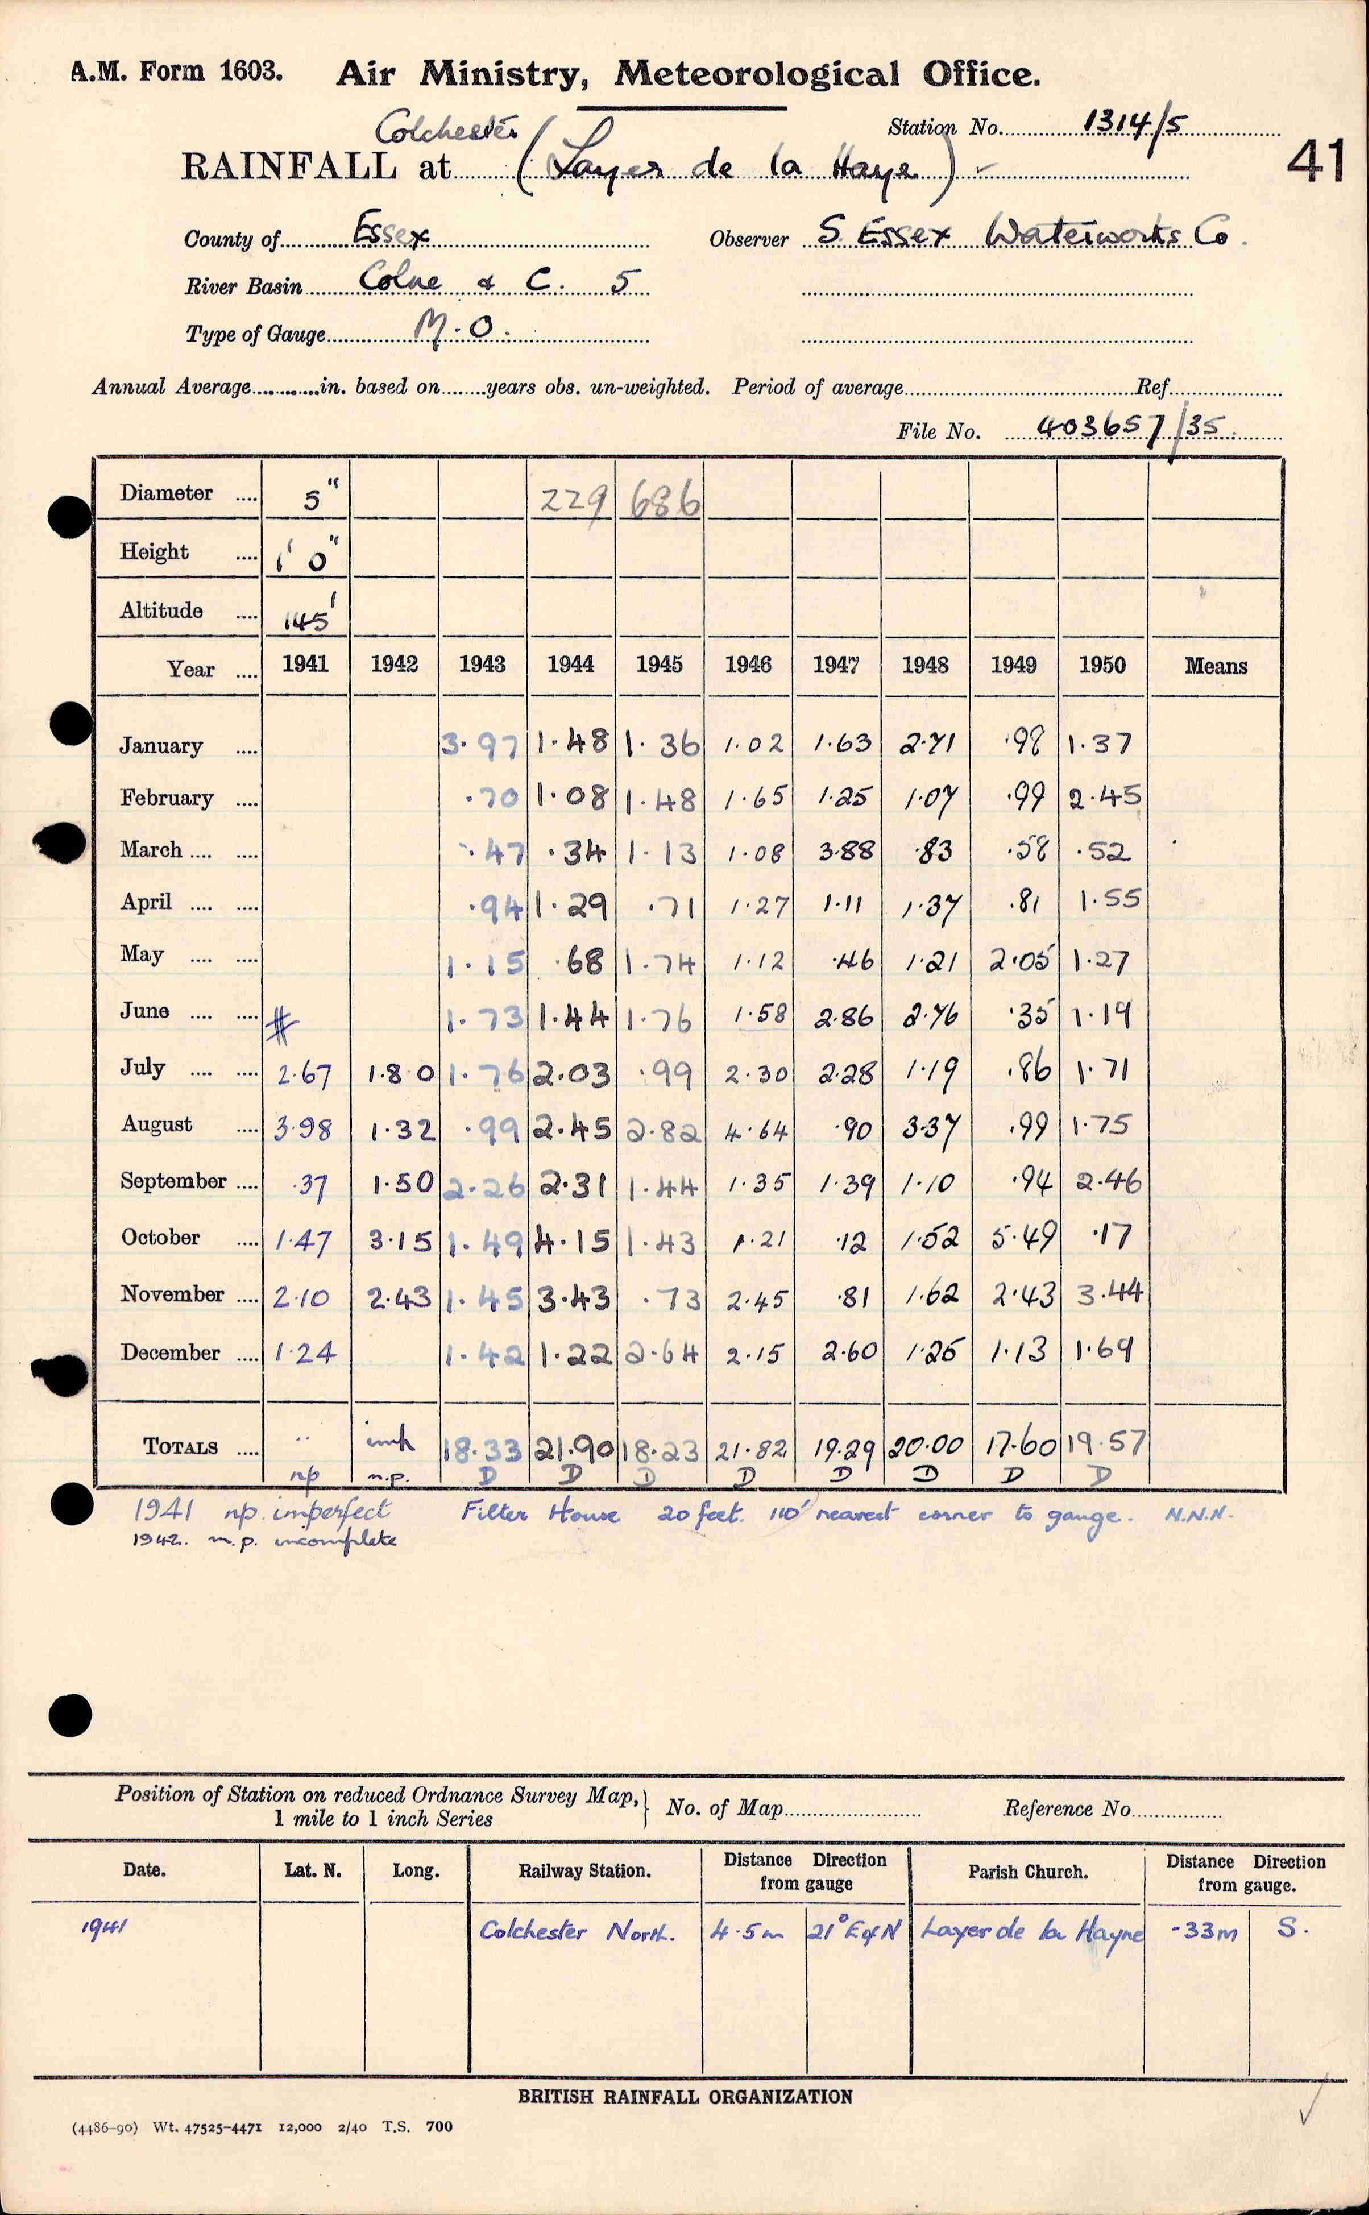 A.M. Form 1603. Air Ministry, Meteorological Office.
Station No. 1314/5
Colchester
RAINFALL at (Layer de la Haye)
41
County of Essex Observer S. Essex Waterworks Co.
River Basin Colne & C. 5
Type of Gauge M.O.
Annual Average in. based on years obs. un-weighted. Period of average Ref.
File No. 403657/35
Diameter 5" 229 686
Height 1' 0"
Altitude 145'
Year 1941 1942 1943 1944 1945 1946 1947 1948 1949 1950 Means
January 3.97 1.48 1.36 1.02 1.63 2.71 .98 1.37
February .70 1.08 1.48 1.65 1.25 1.07 .99 2.45
March .47 .34 1.13 1.08 3.88 .83 .58 .52
April .94 1.29 .71 1.27 1.11 1.37 .81 1.55
May 1.15 .68 1.74 1.12 .46 1.21 2.05 1.27
June # 1.73 1.44 1.76 1.58 2.86 2.76 .35 1.19
July 2.67 1.80 1.76 2.03 .99 2.30 2.28 1.19 .86 1.71
August 3.98 1.32 .99 2.45 2.82 4.64 .90 3.37 .99 1.75
September .37 1.50 2.26 2.31 1.44 1.35 1.39 1.10 .94 2.46
October 1.47 3.15 1.49 4.15 1.43 1.21 .12 1.52 5.49 .17
November 2.10 2.43 1.45 3.43 .73 2.45 .81 1.62 2.43 3.44
December 1.24 1.42 1.22 2.64 2.15 2.60 1.25 1.13 1.69
TOTALS .. 18.33 21.90 18.23 21.82 19.29 20.00 17.60 19.57
np n.p. D D D D D D D D
1941 np. imperfect Filter House 20 feet. 110' nearest corner to gauge. N.N.N.
1942. n.p. incomplete
Position of Station on reduced Ordnance Survey Map, 1 mile to 1 inch Series No. of Map Reference No.
Date. Lat. N. Long. Railway Station. Distance Direction from gauge Parish Church. Distance Direction from gauge.
1941 Colchester North. 4.5m 21° E of N Layer de la Hayne .33m S.
BRITISH RAINFALL ORGANIZATION
(4486-90) Wt. 47525-4471 12,000 2/40 T.S. 700